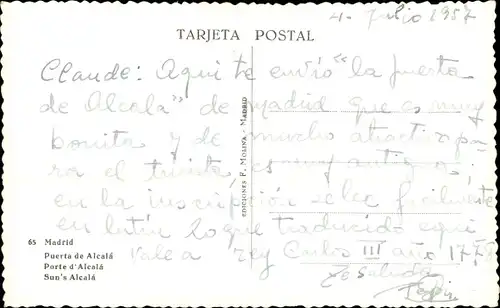 4-Julio 1957
TARJETA POSTAL
Claude: Aqui te envio "la puerta
de Alcala" de madrid que es muy
bonita y de mucho atractivo pa
ra el turista, es muy antigua,
en la inscripción se lee facilmente
en latin lo que traducido equi
vale a rey Carlos III año 17
Te Saluda
Pepi
EDICIONES F. MOLINA - MADRID
65 Madrid
Puerta de Alcalá
Porte d'Alcalá
Sun's Alcalá